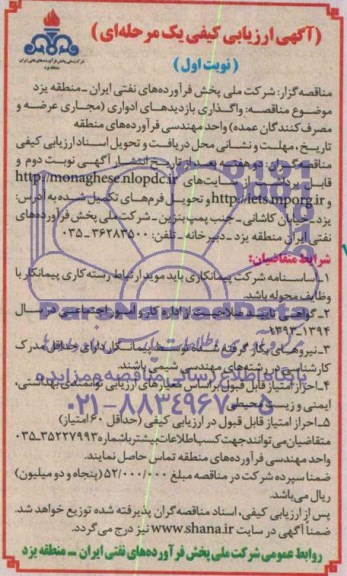 (آگهی ارزیابی کیفی یک مرحله‌ای)
(نوبت اول)
شرکت ملی پخش فرآورده‌های نفتی ایران
منطقه یزد
مناقصه گزار: شرکت ملی پخش فرآورده‌های نفتی ایران ـ منطقه یزد
موضوع مناقصه: واگذاری بازدیدهای ادواری (مجاری عرضه و
مصرف کنندگان عمده) واحد مهندسی فرآورده‌های منطقه
تاریخ، مهلت و نشانی محل دریافت و تحویل اسناد ارزیابی کیفی
مناقصه گران: دو هفته بعد از تاریخ انتشار آگهی نوبت دوم و
قابل برداشت از سایت‌های http://monaghese.nlopdc.ir
و http://iets.mporg.ir و تحویل فرم‌های تکمیل شده به آدرس:
یزد ـ خیابان کاشانی ـ جنب پمپ بنزین ـ شرکت ملی پخش فرآورده‌های
نفتی ایران منطقه یزد ـ دبیرخانه ـ تلفن: ۳۶۲۸۳۵۰۰ـ۰۳۵
شرایط متقاضیان:
۱ـ اساسنامه شرکت پیمانکاری باید موید ارتباط رسته کاری پیمانکار با
وظایف محوله باشد.
۲ـ گواهی تایید صلاحیت از اداره کار و امور اجتماعی در سال
۱۳۹۴ـ۱۳۹۳
۳ـ نیروهای بکار گرفته شده توسط پیمانکار دارای حداقل مدرک
کارشناسی در رشته‌های مهندسی شیمی باشند.
۴ـ احراز امتیاز قابل قبول بر اساس معیارهای ارزیابی توانمندی بهداشتی،
ایمنی و زیست محیطی
۵ـ احراز امتیاز قابل قبول در ارزیابی کیفی (حداقل ۶۰ امتیاز)
متقاضیان می‌توانند جهت کسب اطلاعات بیشتر با شماره ۳۵۲۲۷۹۹۳ـ۰۳۵
واحد مهندسی فرآورده‌های منطقه تماس حاصل نمایند.
ضمنا سپرده شرکت در مناقصه مبلغ ۵۲/۰۰۰/۰۰۰ (پنجاه و دو میلیون)
ریال می‌باشد.
پس از ارزیابی کیفی، اسناد مناقصه گران پذیرفته شده توزیع خواهد شد.
ضمنا آگهی در سایت www.shana.ir نیز درج می گردد.
روابط عمومی شرکت ملی پخش فرآورده‌های نفتی ایران ـ منطقه یزد
ParsNamadData
پایگاه اطلاع رسانی مناقصه و مزایده
۰۲۱-۸۸۳۴۹۶۷۰-۵